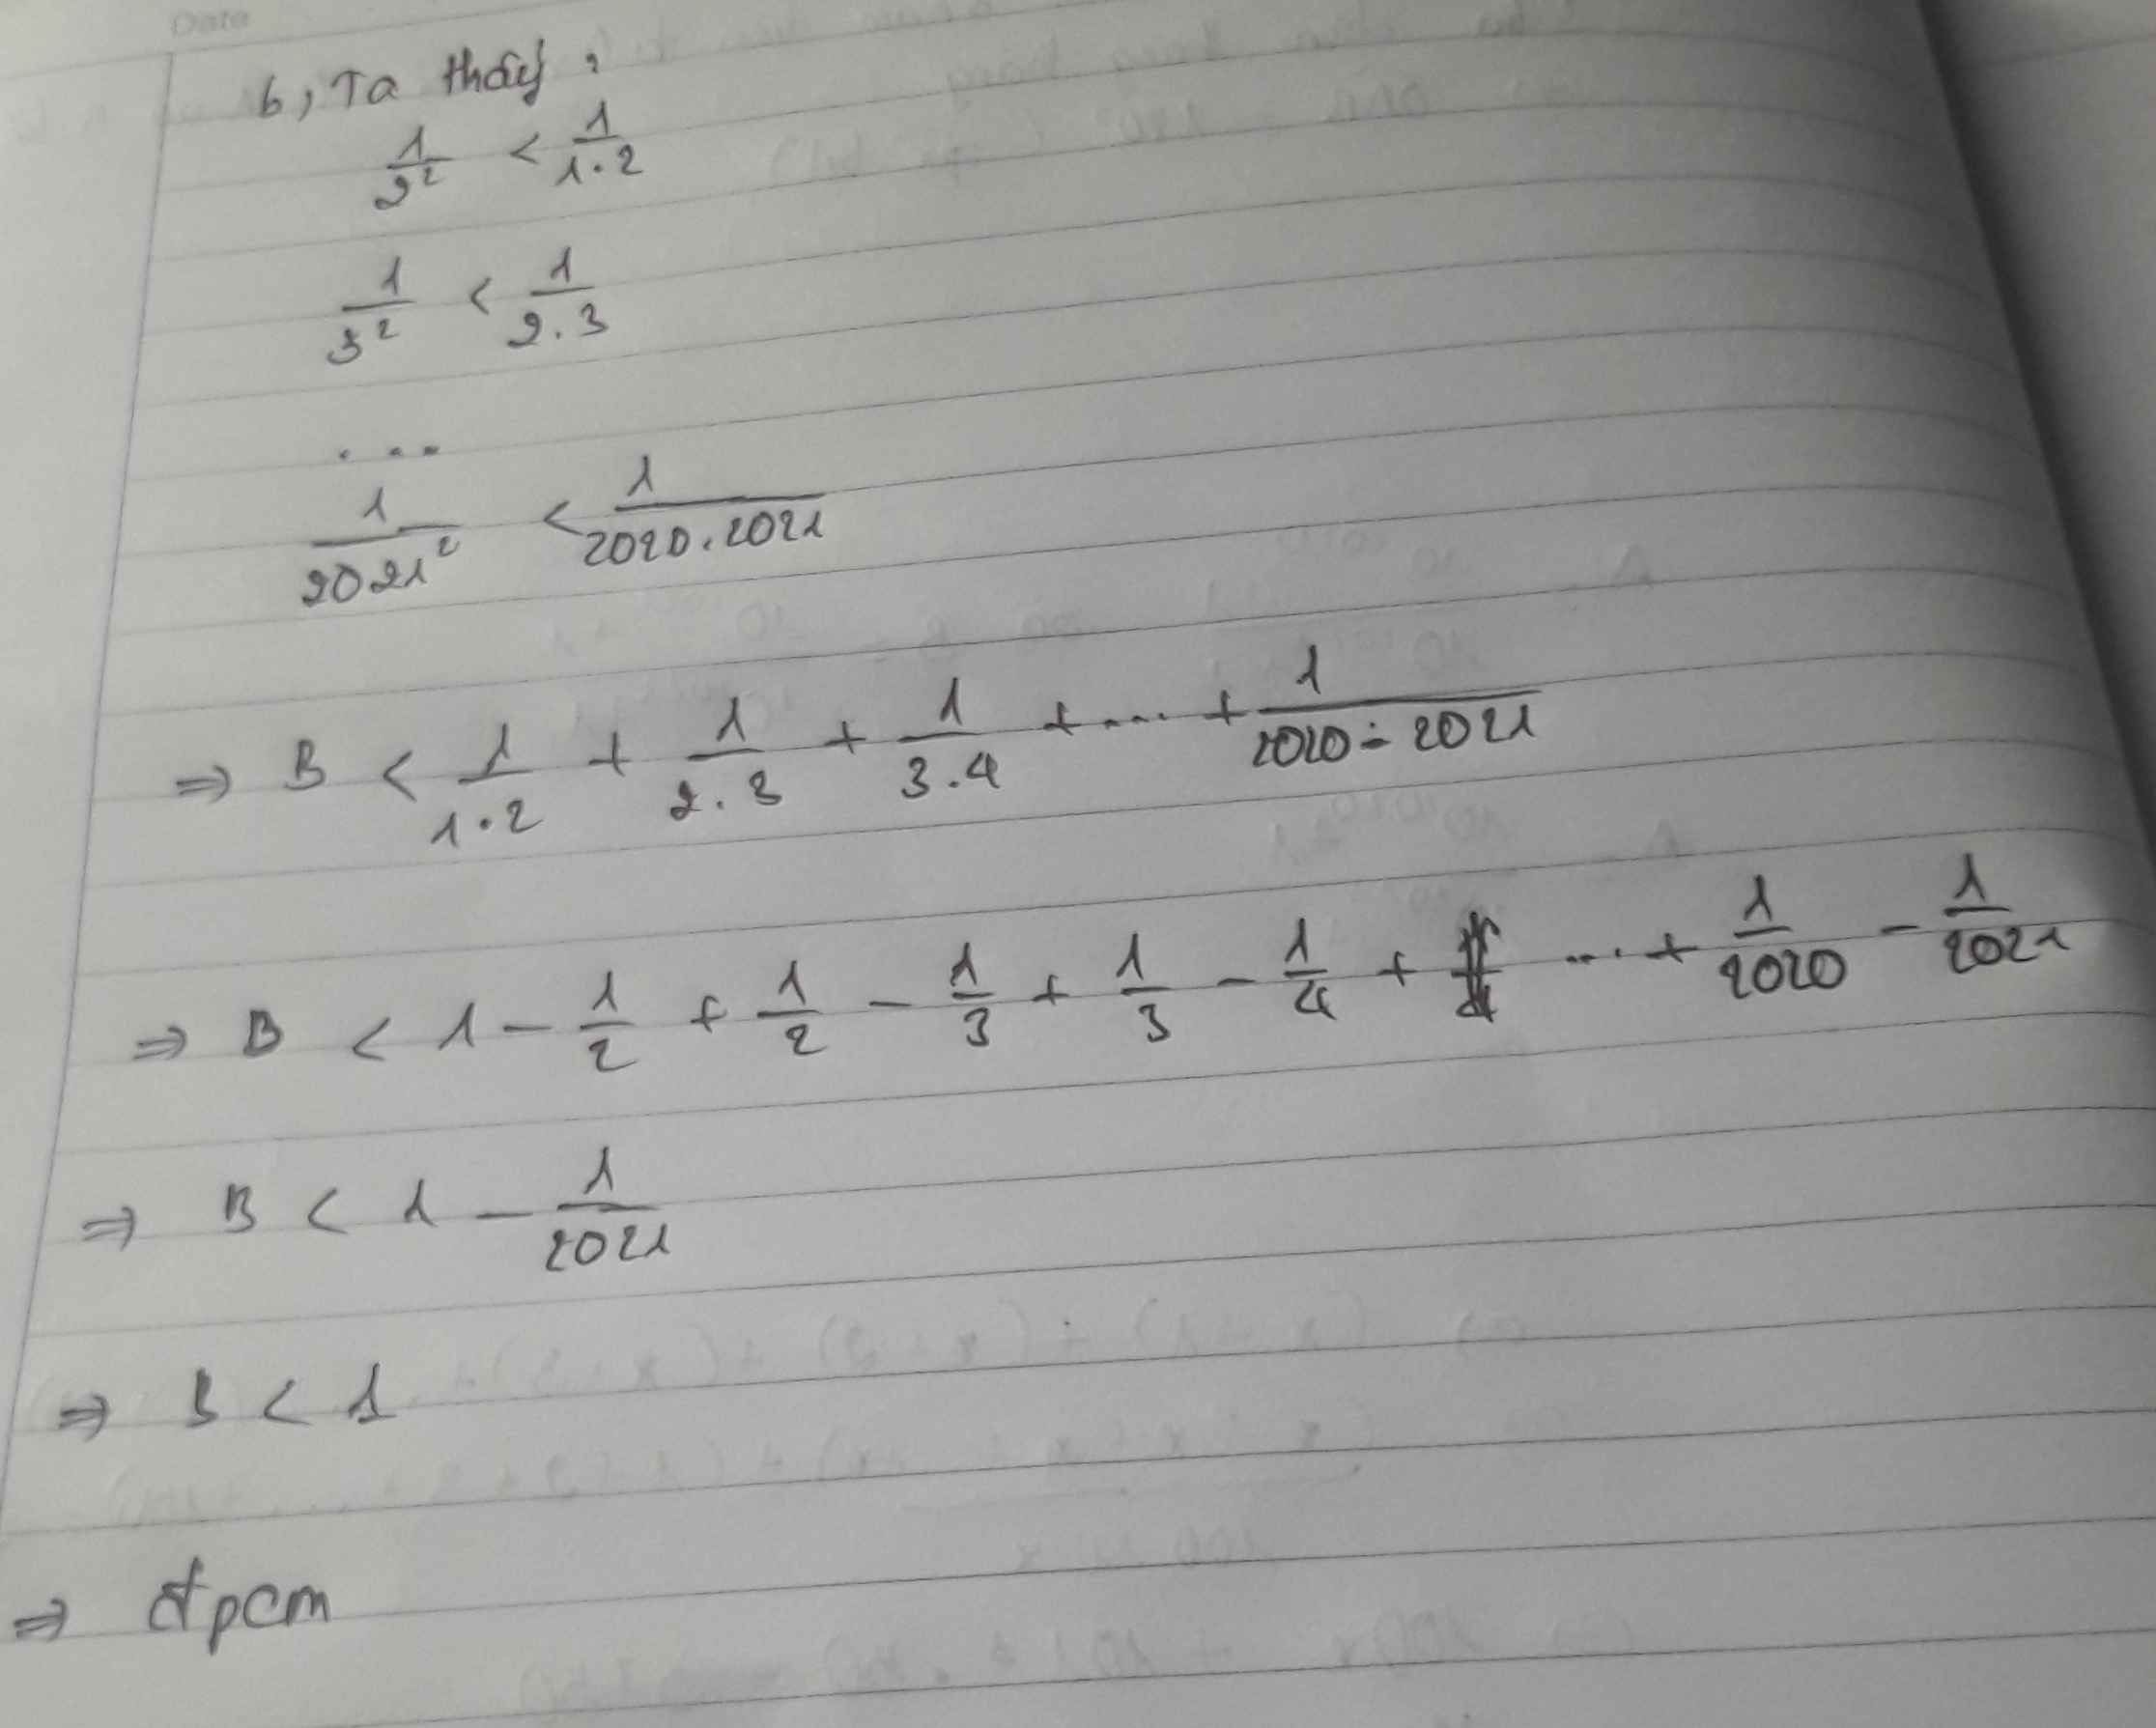 Date
b, Ta thấy :
1/2² < 1/1.2
1/3² < 1/2.3
...
1/2021² < 1/2020.2021
⇒ B < 1/1.2 + 1/2.3 + 1/3.4 + ... + 1/2020.2021
⇒ B < 1 - 1/2 + 1/2 - 1/3 + 1/3 - 1/4 + ... + 1/2020 - 1/2021
⇒ B < 1 - 1/2021
⇒ B < 1
⇒ đpcm